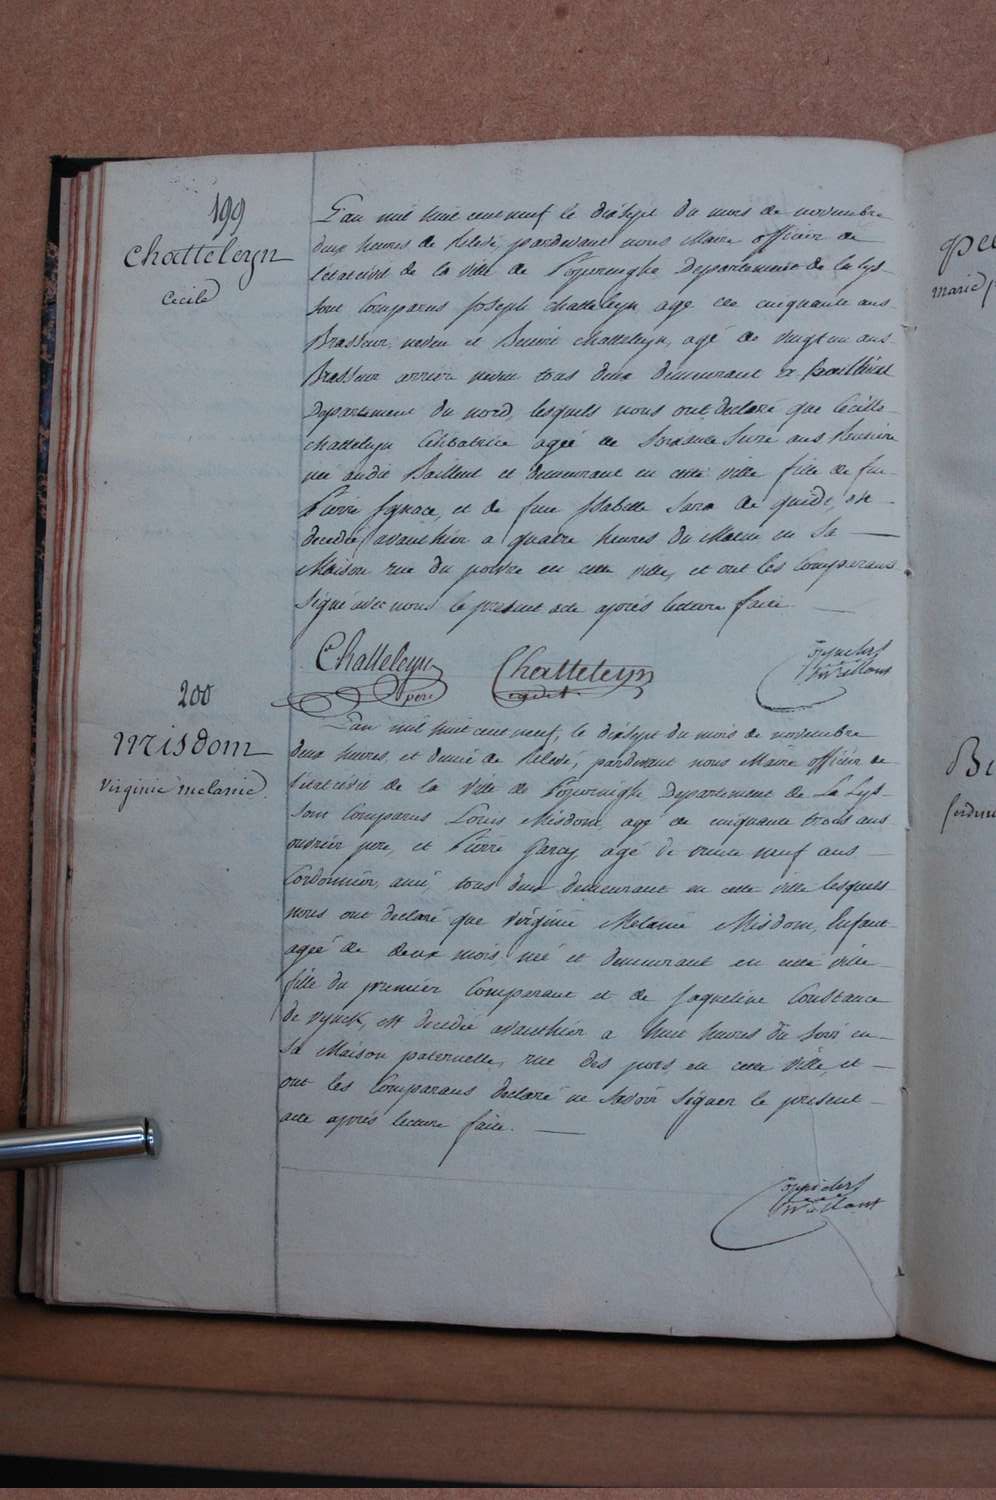 199
Chatteleyn
Cecile
L'an mil huit cent neuf le dixsept du mois de novembre
deux heures de relevé, pardevant nous Maire officier de
l'etat civil de la ville de Poperinghe Departement de la Lys
sont Comparus Joseph Chatteleyn agé de cinquante ans
Brasseur, neveu et Benoit Chatteleyn, agé de vingt un ans
Brasseur arriere neveu tous deux demeurant a Bailleul
Departement du nord, lesquels nous ont declaré que Cecille
Chatteleyn Celibatrice agée de soixante ans
née audit Bailleul et demeurant en cette ville fille de feu
Pierre Ignace, et de feue Isabelle Sara de , est
decedée avanthier a quatre heures du Matin en Sa
Maison rue du poivre en cette ville, et ont les Comparans
Signé avec nous le present acte aprés lecture faite
Chatteleyn
pere
Chatteleyn
cadet
200
Misdom
Virginie melanie.
L'an mil huit cent neuf, le dixsept du mois de novembre
deux heures, et demie de relevé, pardevant nous Maire officier de
l'etat civil de la Ville de Poperinghe Departement de La Lys
sont Comparus Louis Misdom, agé de cinquante trois ans
ouvrier pere, et Pierre Garcy, agé de trente neuf ans
Cordonnier, ami, tous deux demeurant en cette ville lesquels
nous ont declaré que Virginie Melanie Misdom, Enfant
agée de deux mois, née et demeurant en cette ville
fille du premier Comparant et de Jaqueline Constance
de vynck, est decedée avanthier a huit heures du soir en
sa Maison paternelle, rue des pots en cette ville et
ont les Comparans declaré ne Savoir Signer le present
acte aprés lecture faite.
Pee
marie
Be
ferdin